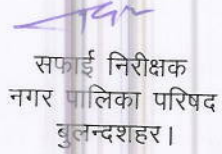 सफाई निरीक्षक
नगर पालिका परिषद
बुलन्दशहर।